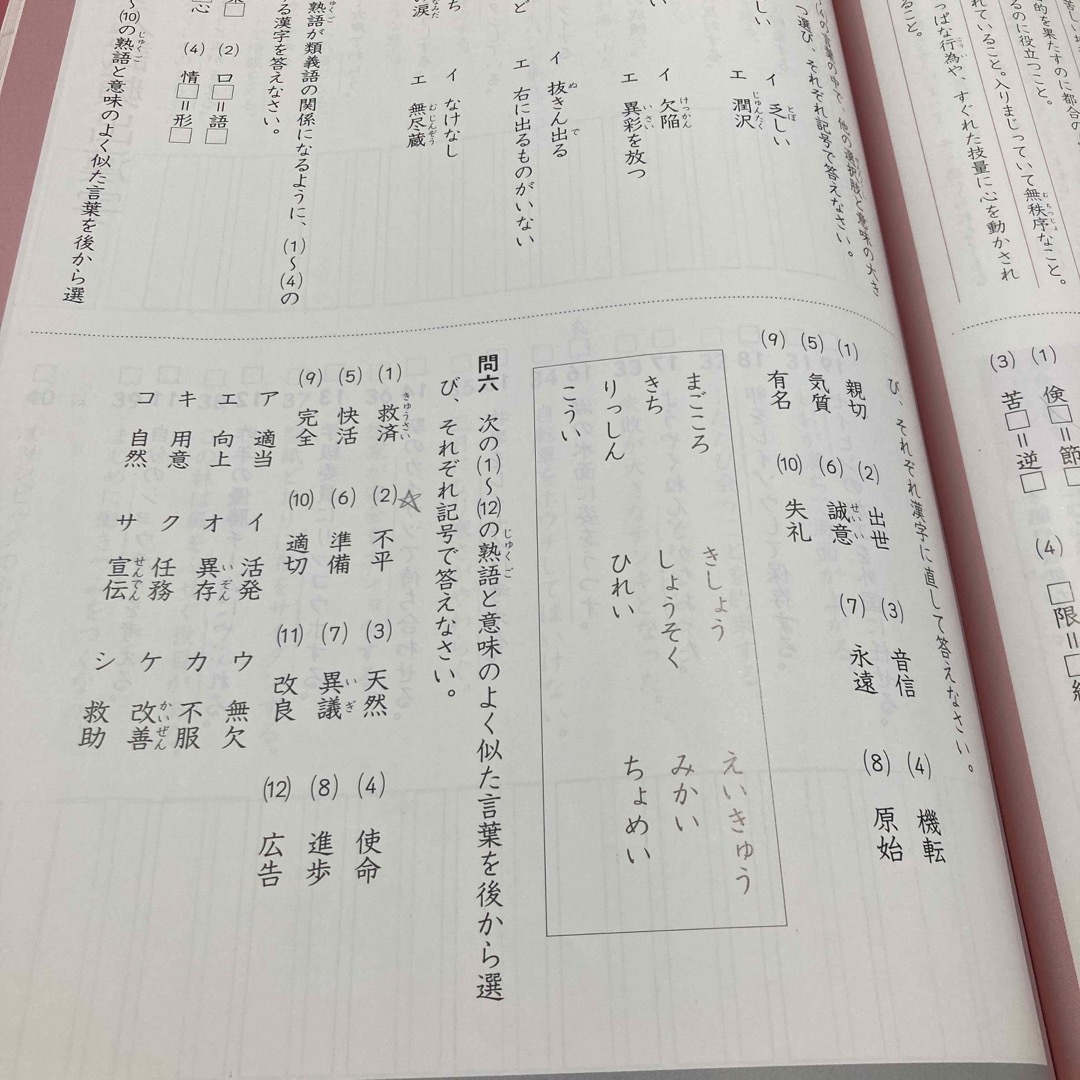 苦しい
的を果たすのに都合の
るのに役立つこと。
れていること。入りまじっていて無秩序なこと。
っぱな行為や、すぐれた技量に心を動かされ
ること。
の言葉の中で、他の選択肢と意味の大き
つ選び、それぞれ記号で答えなさい。
しい
イ 乏しい
エ 潤沢
イ 欠陥
エ 異彩を放つ
イ 抜きん出る
エ 右に出るものがいない
ど
イ なけなし
エ 無尽蔵
ち
涙
熟語が類義語の関係になるように、(1)〜(4)の
る漢字を答えなさい。
(2) 口□=語□
(4) 情□=形□
心
〜(10)の熟語と意味のよく似た言葉を後から選
(1) 倹□=節□
(3) 苦□=逆□
(4) □限=□
び、それぞれ漢字に直して答えなさい。
(1) 親切 (2) 出世 (3) 音信 (4) 機転
(5) 気質 (6) 誠意 (7) 永遠 (8) 原始
(9) 有名 (10) 失礼
きしょう えいきゅう
まごころ しょうそく みかい
きち ひれい ちょめい
りっしん
こうい
問六 次の(1)〜(12)の熟語と意味のよく似た言葉を後から選
び、それぞれ記号で答えなさい。
(1) 救済 (2) 不平 (3) 天然 (4) 使命
(5) 快活 (6) 準備 (7) 異議 (8) 進歩
(9) 完全 (10) 適切 (11) 改良 (12) 広告
ア 適当 イ 活発 ウ 無欠
エ 向上 オ 異存 カ 不服
キ 用意 ク 任務 ケ 改善
コ 自然 サ 宣伝 シ 救助